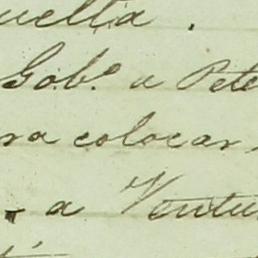 uelta .
Gob.º a Pete
ra colocar
a Ventu